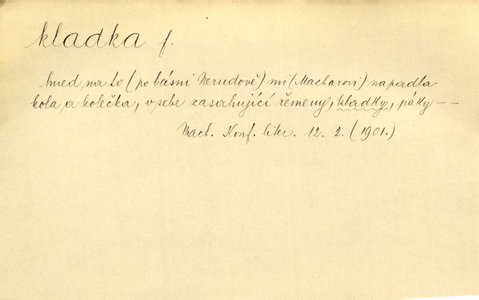 kladka f.
hned na to (po básni Nerudově) mi (Macharovi) napadla
kola a kolečka, v sebe zasahující řemeny, kladky, páky — —
Mach. Konf. liter. 12. 2. (1901.)